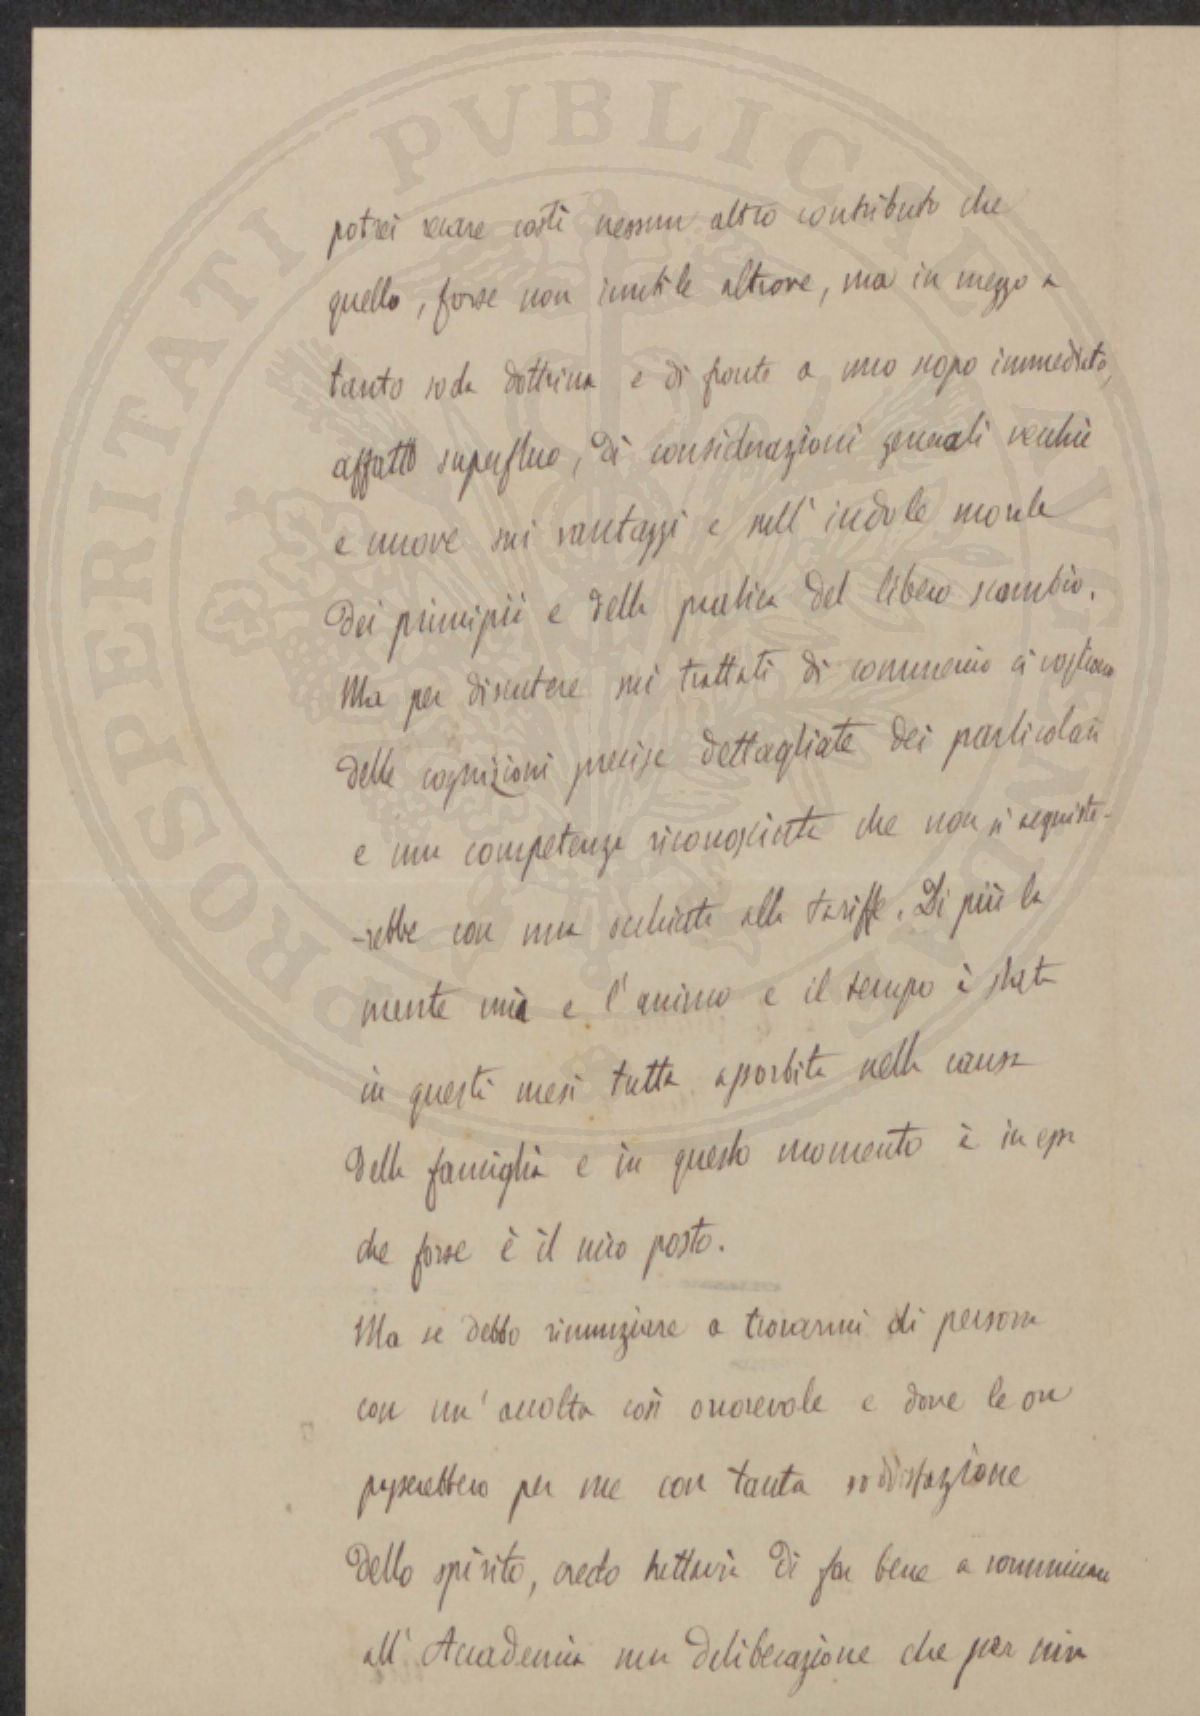 PROSPERITATI PVBLICAE AVGENDAE
potrei recare costì nessun altro contributo che
quello, forse non inutile altrove, ma in mezzo a
tanto soda dottrina e di fronte a uno scopo immediato,
affatto superfluo, di considerazioni generali vecchie
e nuove sui vantaggi e sull'indole morale
dei principii e della pratica del libero scambio.
Ma per discutere sui trattati di commercio ci vogliono
delle cognizioni precise dettagliate dei particolari
e una competenza riconosciuta che non si acquiste-
-rebbe con una occhiata alle tariffe. Di più la
mente mia e l'animo e il tempo è stata
in questi mesi tutta assorbita nella causa
della famiglia e in questo momento è in essa
che forse è il mio posto.
Ma se debbo rinunziare a trovarmi di persona
con un'accolta così onorevole e dove le ore
passerebbero per me con tanta soddisfazione
dello spirito, credo tuttavia di far bene a comunicare
all'Accademia una deliberazione che per mia